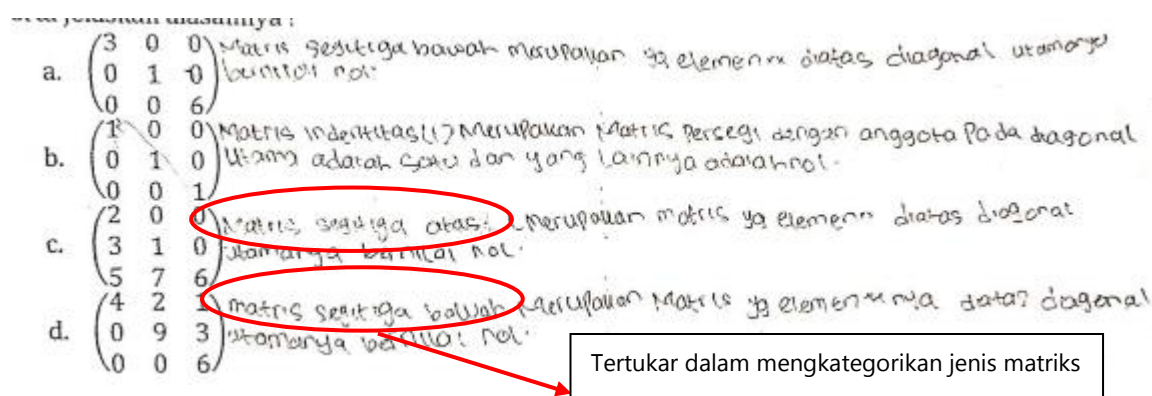 a. (3 0 0 Matris segitiga bawah merupakan yg elemenn diatas diagonal utamanya
0 1 0 bernilai nol.
0 0 6)
b. (1 0 0 Matris indentitas(1) Merupakan Matris Persegi dengan anggota Pada diagonal
0 1 0 Utama adalah satu dan yang Lainnya adalah nol.
0 0 1)
c. (2 0 0 Matris segitiga atas: Merupakan matris yg elemenn diatas diagonal
3 1 0 utamanya bernilai nol.
5 7 6)
d. (4 2 1 matris segitiga bawah Merupakan Matris yg elemennnya diatas diagonal
0 9 3 utamanya bernilai nol.
0 0 6)
Tertukar dalam mengkategorikan jenis matriks